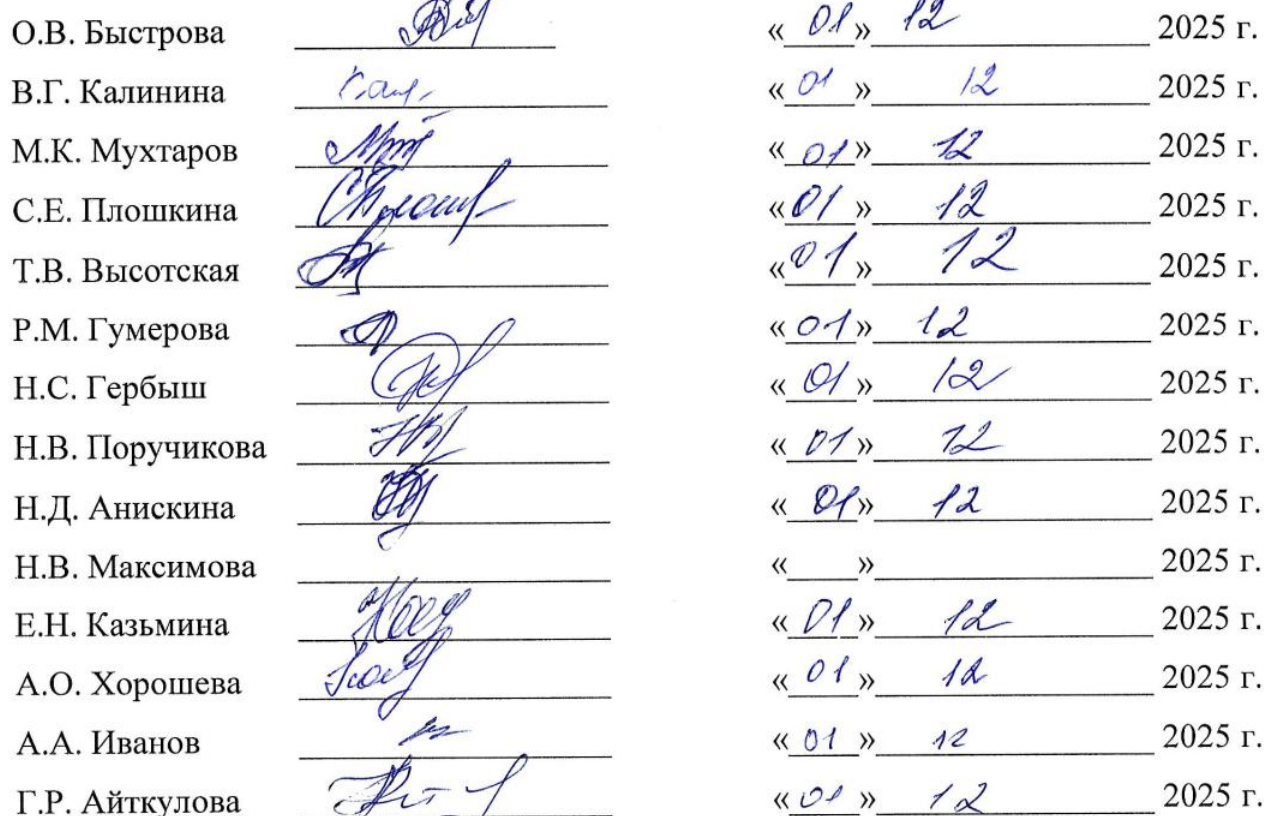 О.В. Быстрова «01» 12 2025 г.
В.Г. Калинина «01» 12 2025 г.
М.К. Мухтаров «01» 12 2025 г.
С.Е. Плошкина «01» 12 2025 г.
Т.В. Высотская «01» 12 2025 г.
Р.М. Гумерова «01» 12 2025 г.
Н.С. Гербыш «01» 12 2025 г.
Н.В. Поручикова «01» 12 2025 г.
Н.Д. Анискина «01» 12 2025 г.
Н.В. Максимова «___» 2025 г.
Е.Н. Казьмина «01» 12 2025 г.
А.О. Хорошева «01» 12 2025 г.
А.А. Иванов «01» 12 2025 г.
Г.Р. Айткулова «01» 12 2025 г.